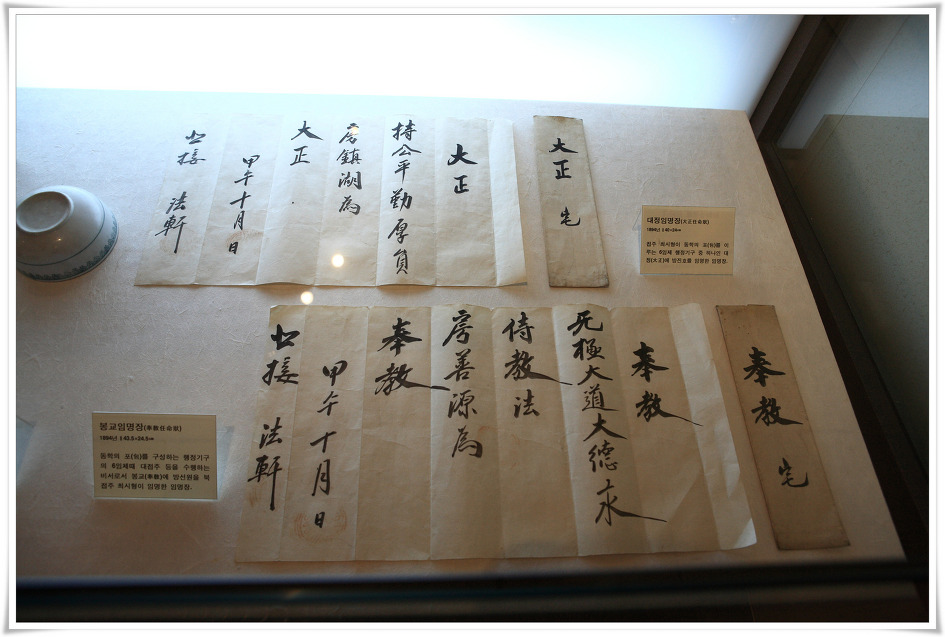 大正 宅
大正
持公平勤厚員
房鎮湖為
大正
甲午十月日
北接 法軒
대정임명장(大正任命狀)
1894년
접주 최시형이 동학의 포(包)를 이
루는 6임제 행정기구 중 하나인 대
정(大正)에 방진호를 임명한 임명장.
奉教 宅
奉教
无極大道大德
侍教法
房善源為
奉教
甲午十月日
北接 法軒
봉교임명장(奉教任命狀)
1894년 43.5×24.5㎝
동학의 포(包)를 구성하는 행정기구
의 6임제때 대접주 등을 수행하는
비서로서 봉교(奉教)에 방선원을 북
접주 최시형이 임명한 임명장.